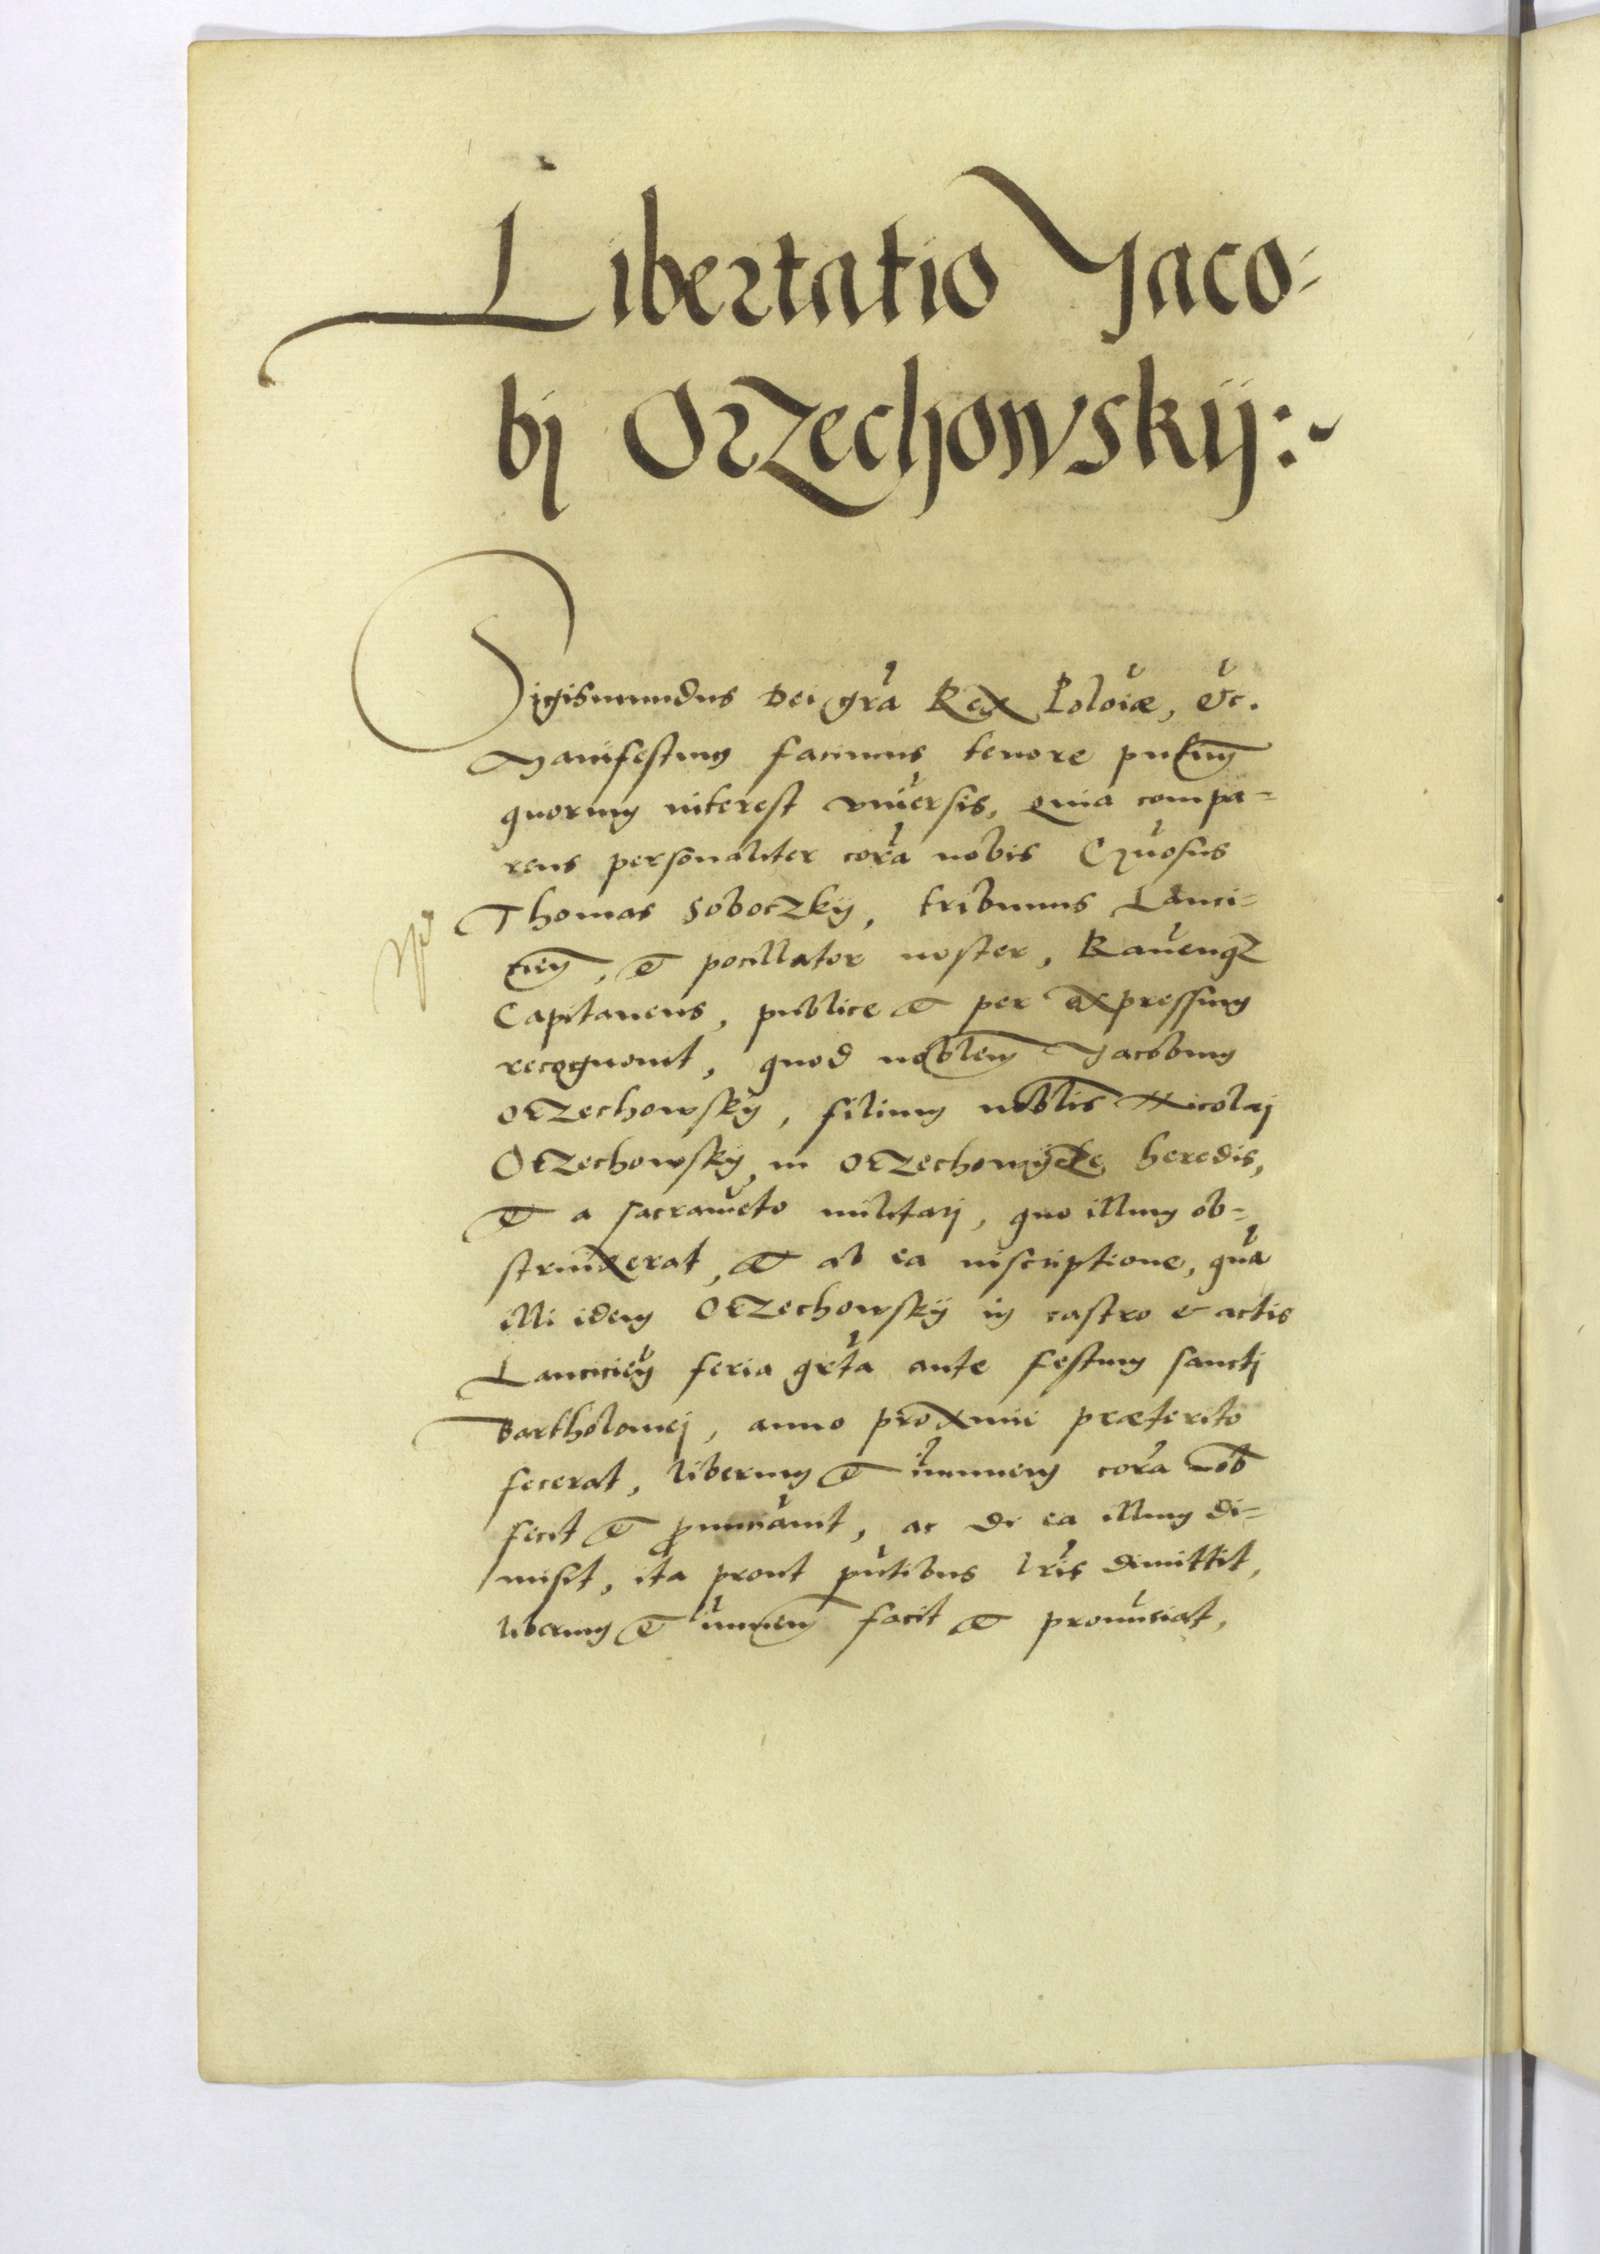 Libertatio Jaco-
bj Orzechowskij:~
Sigismundus Dei gra Rex Poloiæ, etc.
Manifestum facimus tenore pntium
quorum interest vniuersis, Quia compa-
rens personaliter cora nobis Gnosus
Thomas Soboczkij, tribunus Lanci-
cien, et pocillator noster, Rauenqz
Capitaneus, publice et per expressum
recognouit, quod noblem Jacobum
Orzechowskij, filium noblis Nicolaj
Orzechowskij in Orzechowijcze heredis,
et a sacrameto militarj, quo illum ob-
strinxerat, et ab ea inscriptione, qua
illi idem Orzechowskij in castro et actis
Lancicien feria qrta ante festum sanctj
Bartholomej, anno proxime præterito
fecerat, liberum et imunem cora nob
fecit et pnunciauit, ac de ea illum di-
misit, ita prout pntibus lris dimittit,
liberum et imunem facit et pronuciat,